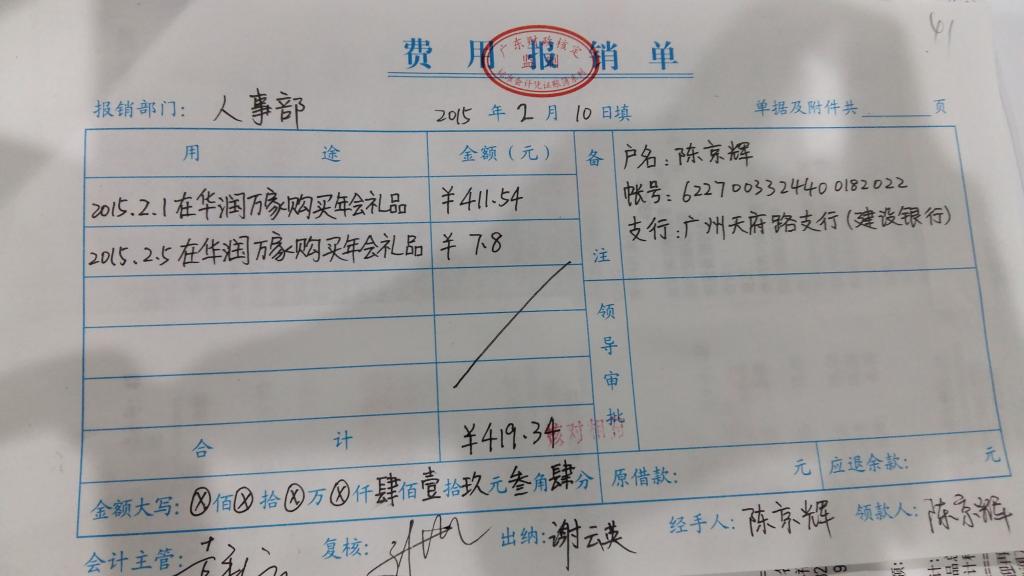 41
费用报销单
广东财政核定
报销部门: 人事部 2015 年 2 月 10 日填 单据及附件共 页
用 途 金额(元) 备注 户名: 陈京辉
2015.2.1在华润万家购买年会礼品 ¥411.54 帐号: 6227003324400182022
2015.2.5在华润万家购买年会礼品 ¥ 7.8 支行: 广州天府路支行(建设银行)
领导审批
合 计 ¥419.34
金额大写: ⓧ佰ⓧ拾ⓧ万ⓧ仟肆佰壹拾玖元叁角肆分 原借款: 元 应退余款: 元
会计主管: 复核: 出纳: 谢云英 经手人: 陈京辉 领款人: 陈京辉